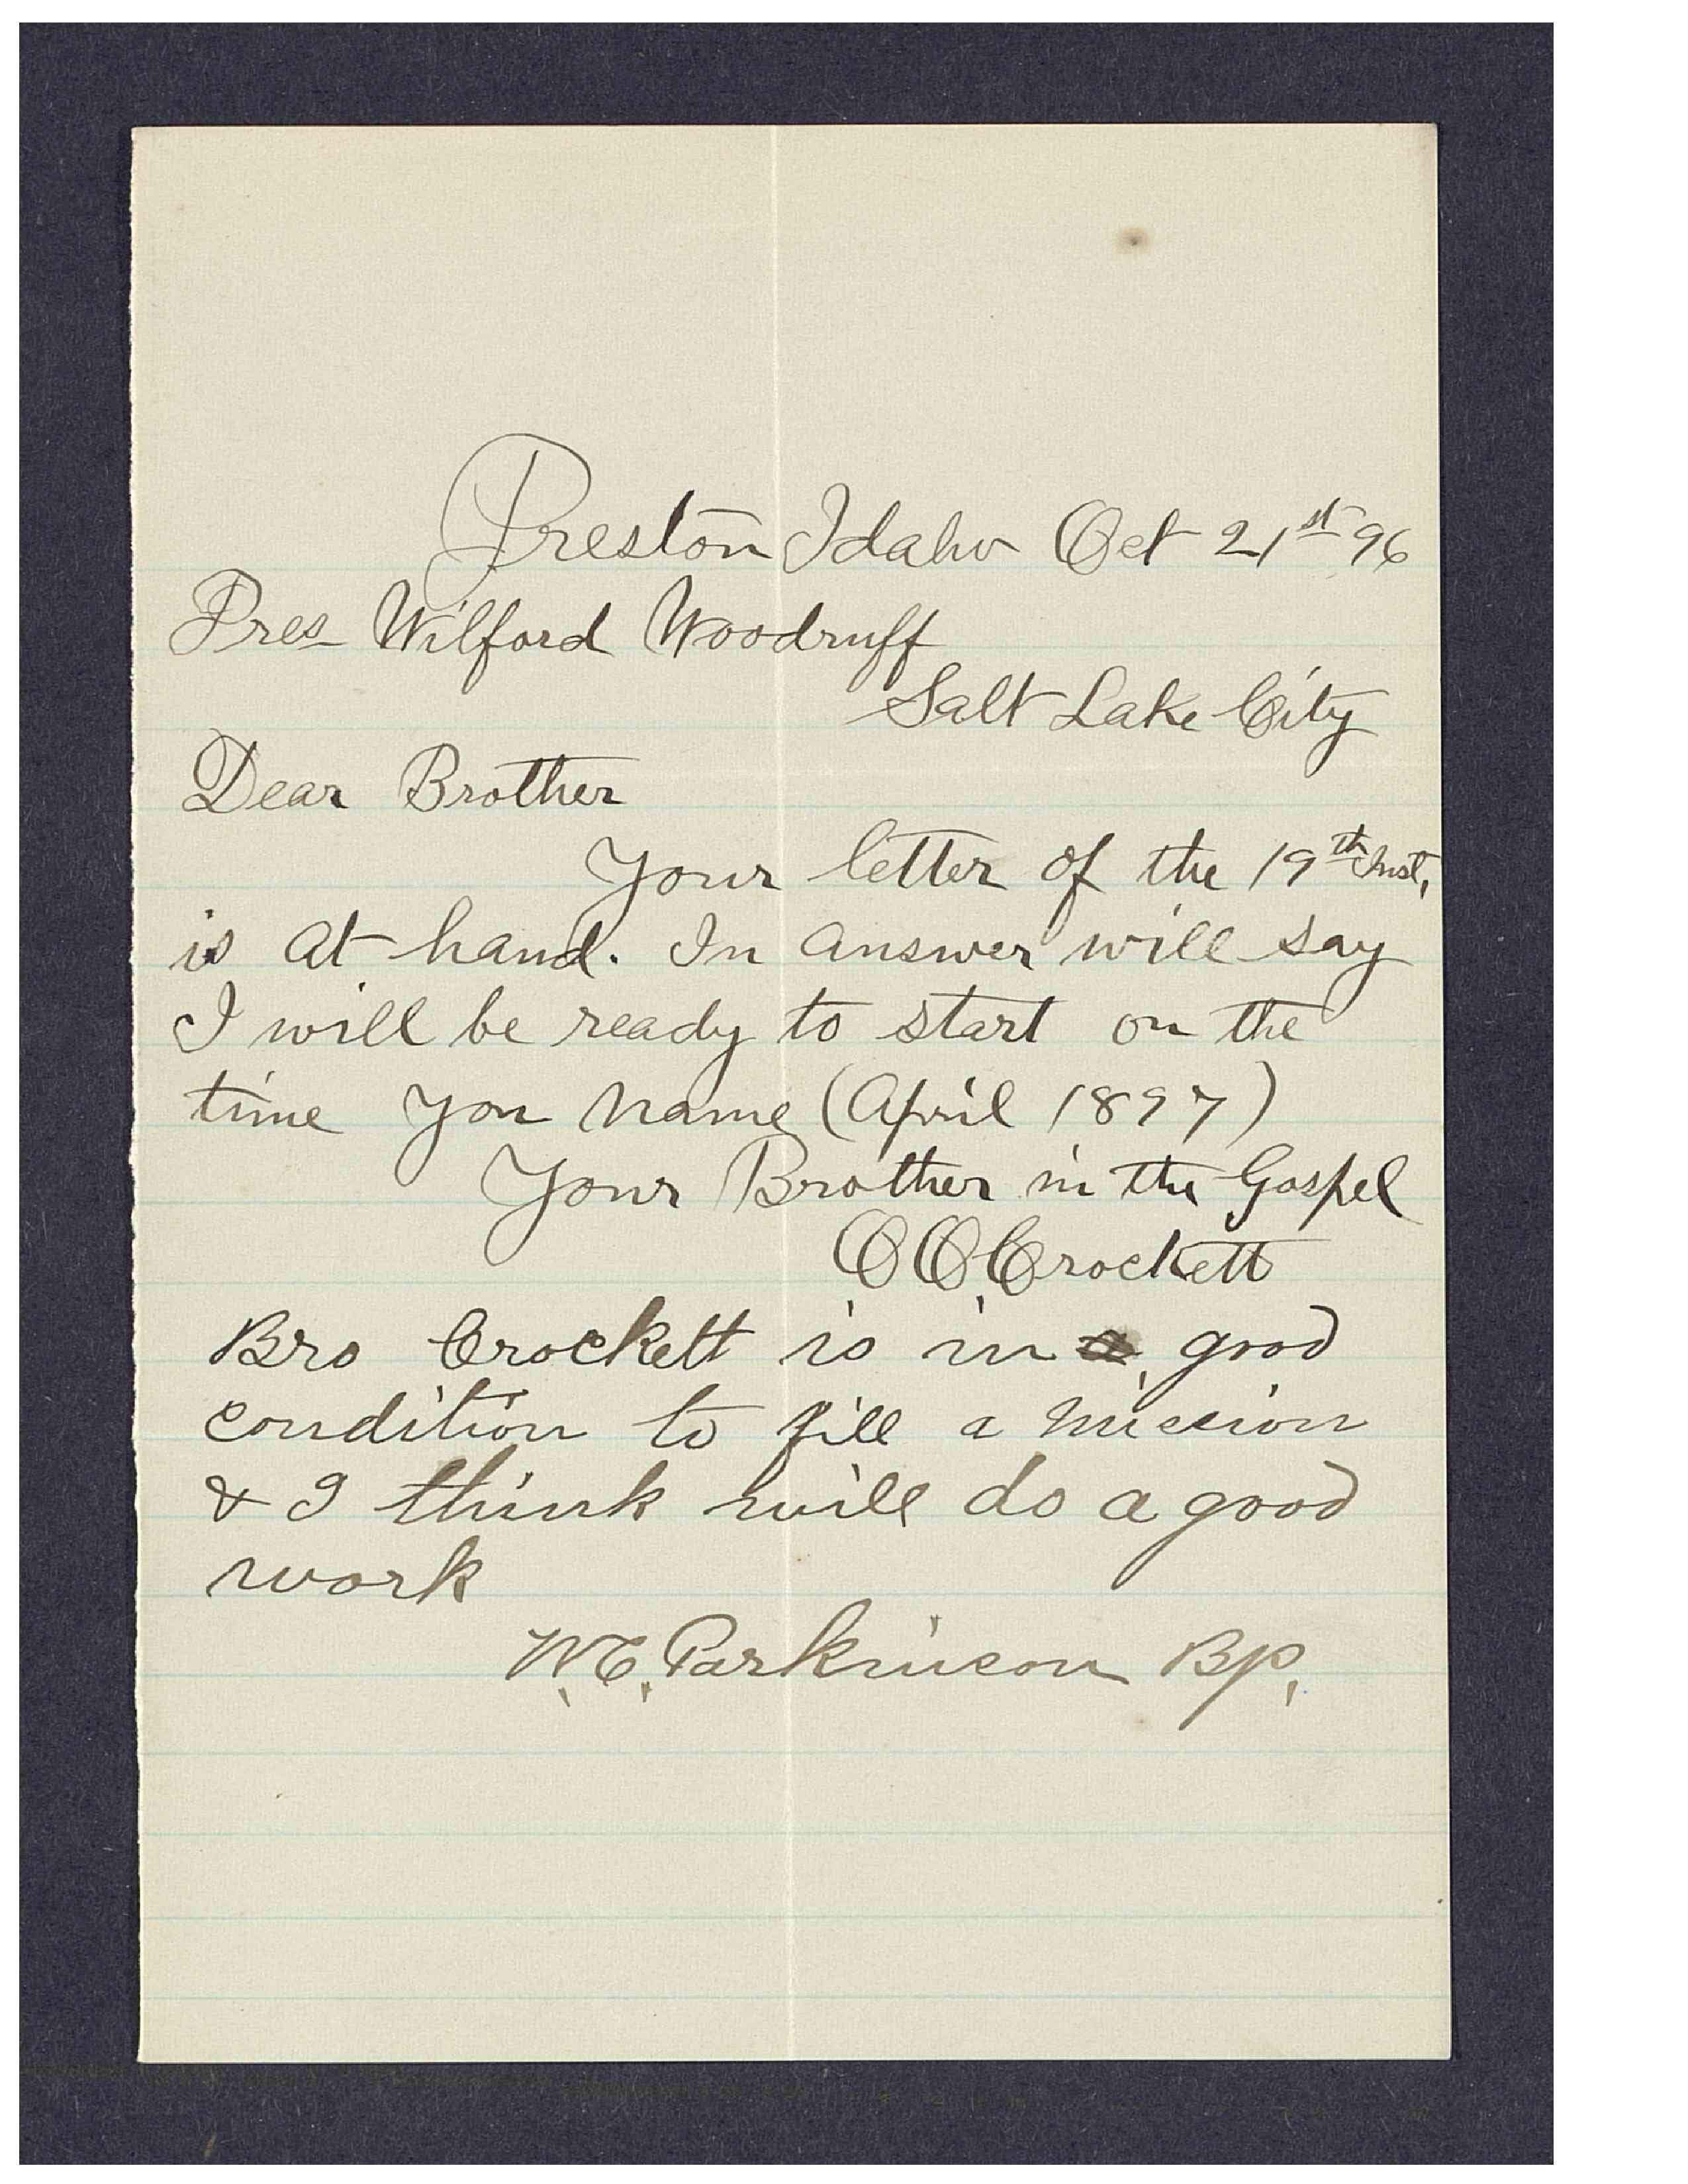 Preston Idaho Oct 21st 96
Pres Wilford Woodruff
Salt Lake City
Dear Brother
Your letter of the 19th Inst,
is at hand. In answer will say
I will be ready to start on the
time you name (April 1897)
Your Brother in the Gospel
O O Crockett
Bro Crockett is in a good
condition to fill a mission
& I think will do a good
work
W.C. Parkinson Bp.